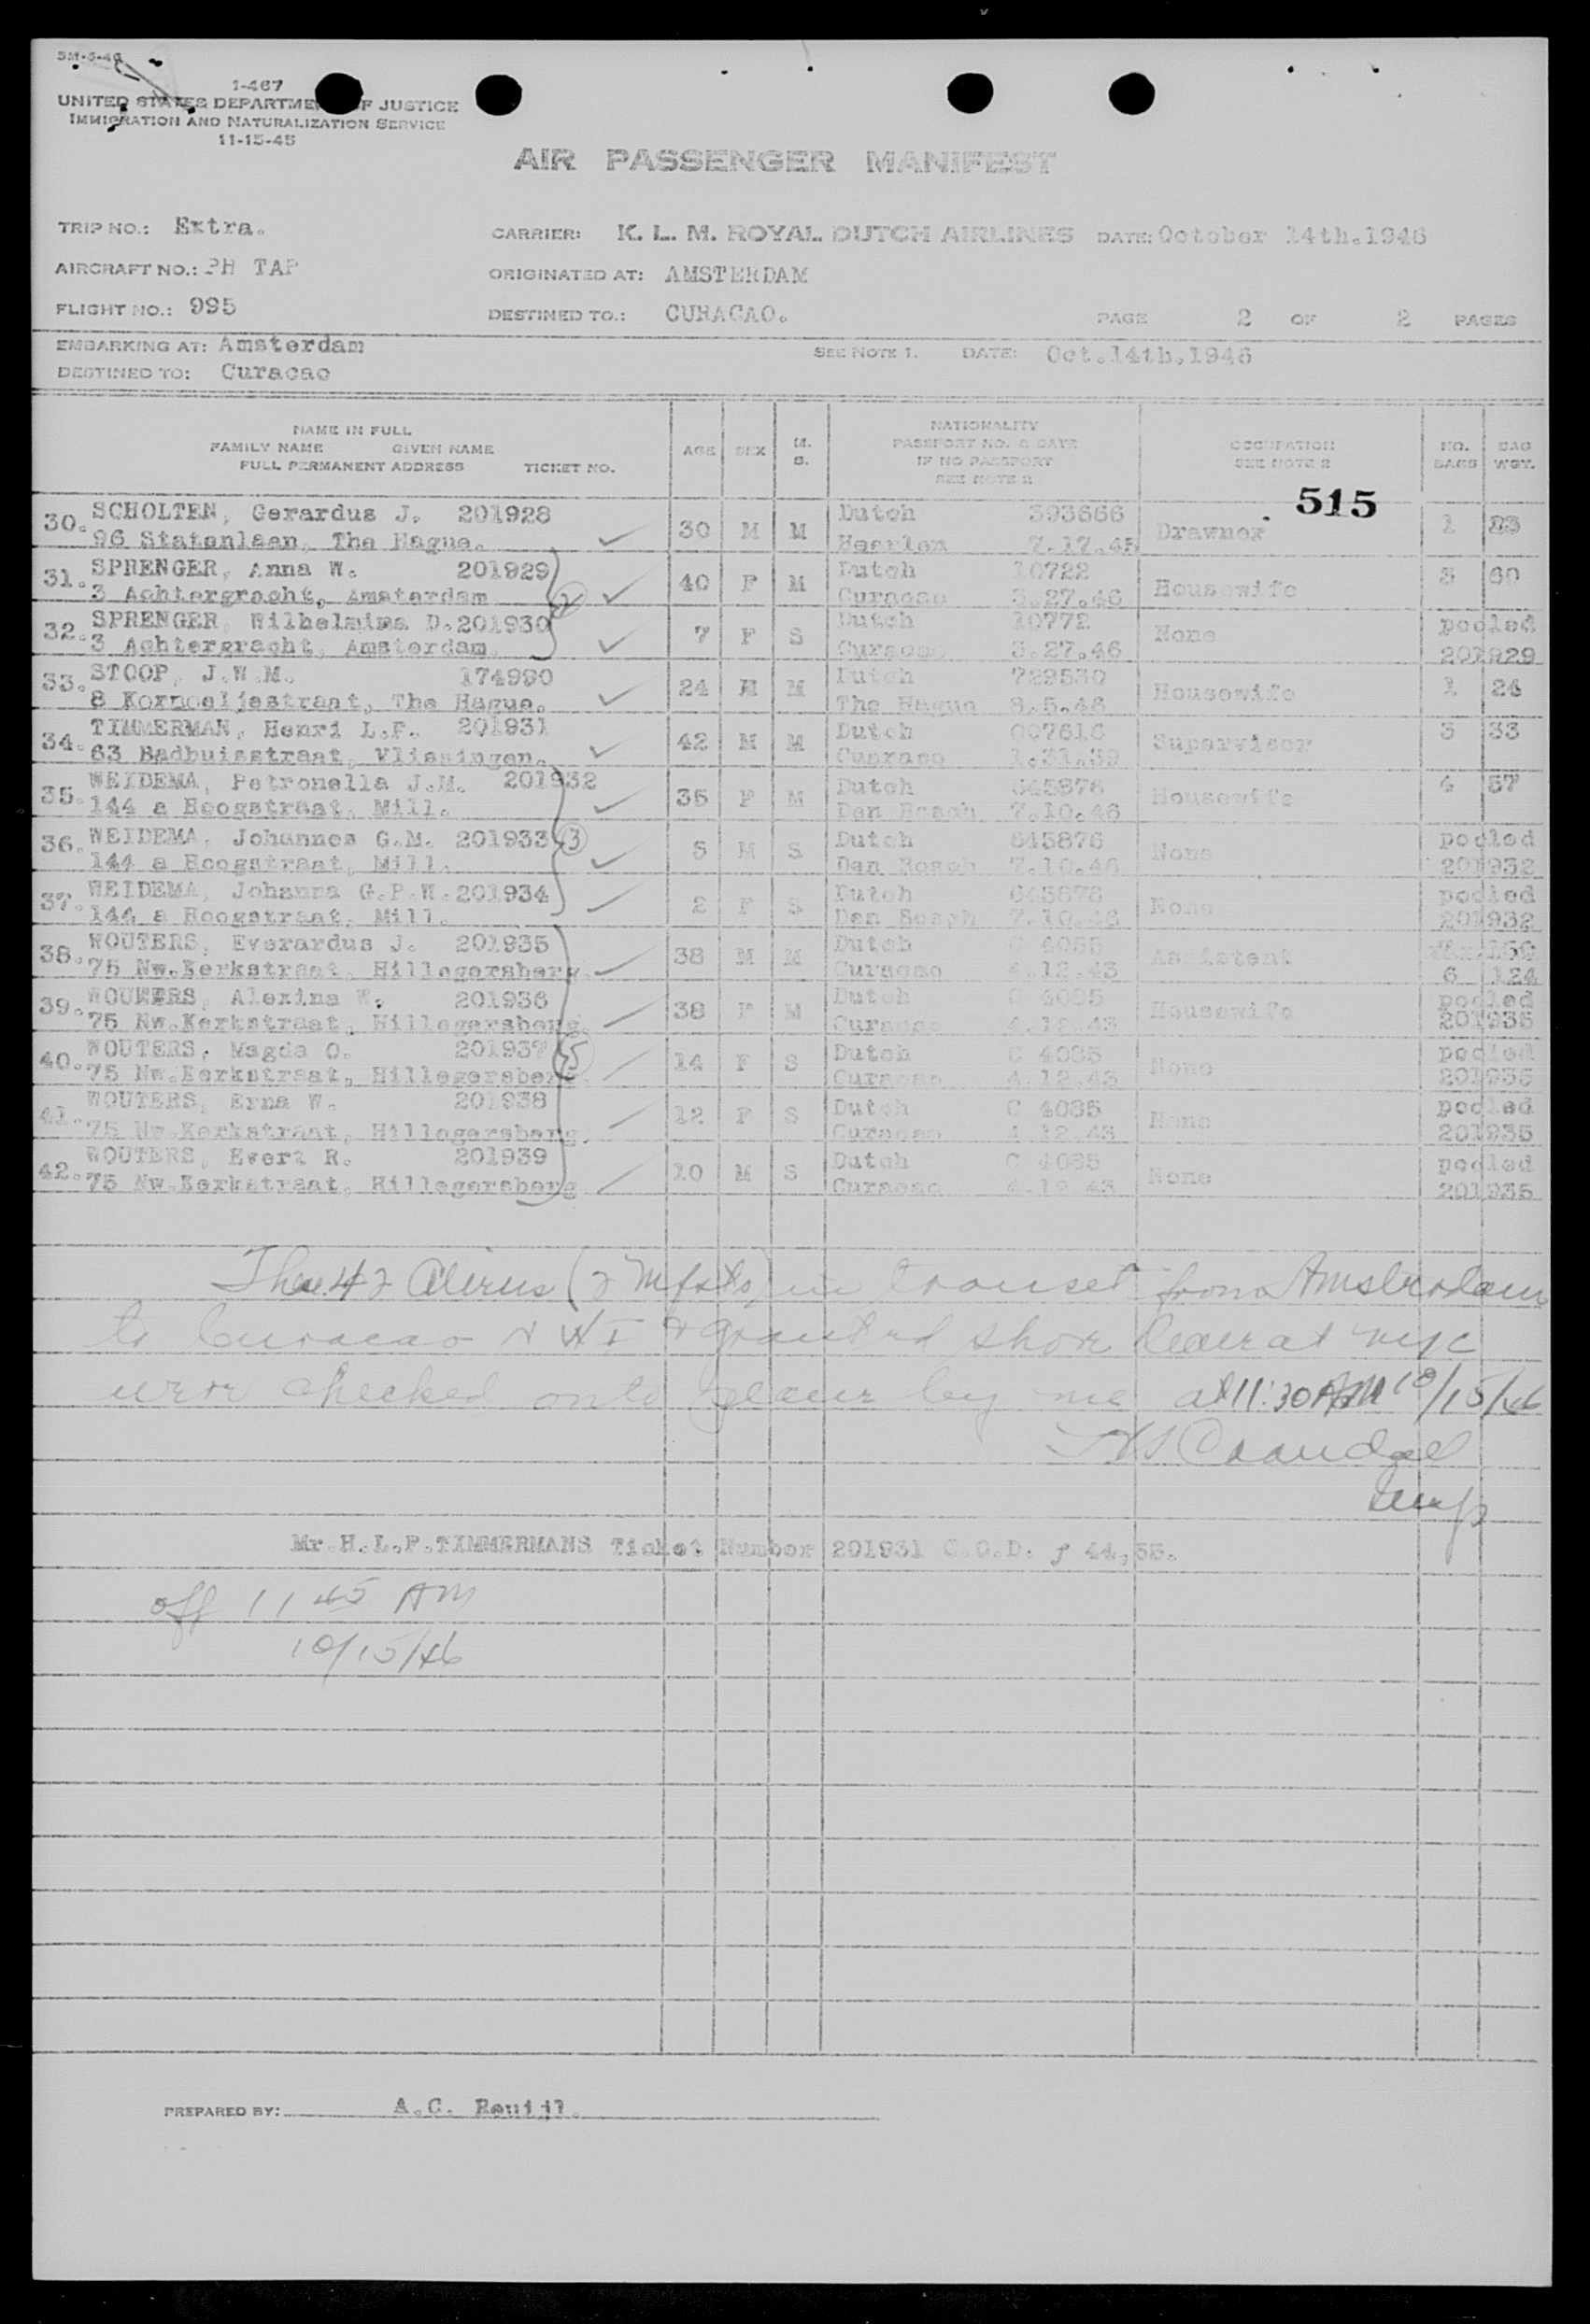 SM-5-46
1-467
UNITED STATES DEPARTMENT OF JUSTICE
IMMIGRATION AND NATURALIZATION SERVICE
11-15-45
AIR PASSENGER MANIFEST
TRIP NO.: Extra. CARRIER: K. L. M. ROYAL DUTCH AIRLINES DATE: October 14th.1946
AIRCRAFT NO.: PH TAP ORIGINATED AT: AMSTERDAM
FLIGHT NO.: 995 DESTINED TO.: CURACAO. PAGE 2 OF 2 PAGES
EMBARKING AT: Amsterdam SEE NOTE 1. DATE: Oct.14th,1946
DESTINED TO: Curacao
NAME IN FULL
FAMILY NAME GIVEN NAME
FULL PERMANENT ADDRESS TICKET NO. AGE SEX M. S.
NATIONALITY
PASSPORT NO. & DATE
IF NO PASSPORT
SEE NOTE 2
OCCUPATION
SEE NOTE 2
NO. BAGS BAG WGT.
515
30. SCHOLTEN, Gerardus J. 201928 30 M M Dutch 393666 1
96 Statenlaan, The Hague. 7.17.45
31. SPRENGER, Anna W. 201929 40 F M Dutch 10722 Housewife 3 60
3 Achtergracht, Amsterdam Curacao 3.27.46
2
32. SPRENGER, Wilhelmina D. 201930 7 F S Dutch 10772 None pooled
3 Achtergracht, Amsterdam. Curacao 3.27.46 201929
33. STOOP, J.W.M. 174990 24 M Dutch 729530 Housewife 1 24
8 Kornoeljestraat, The Hague. The Hague 8.5.46
34. TIMMERMAN, Henri L.F. 201931 42 M M Dutch Supervisor 3 33
63 Badhuisstraat, Vlissingen. Curacao 1.31.39
35. WEIDEMA, Petronella J.M. 201932 35 F M Dutch Housewife 4 57
144 a Hoogstraat, Mill. Den Bosch 7.10.46
36. WEIDEMA, Johannes G.M. 201933 5 M S Dutch 645876 None pooled
3
144 a Hoogstraat, Mill. Den Bosch 7.10.46 201932
37. WEIDEMA, Johanna G.P.W. 201934 2 F S Dutch None pooled
144 a Hoogstraat, Mill. Den Bosch 7.10.46 201932
38. WOUTERS, Everardus J. 201935 38 M M Dutch C 4085 Assistent
75 Nw.Kerkstraat, Hillegersberg. Curacao 4.12.43 6 124
39. WOUTERS, Alexina W. 201936 38 F M Dutch C 4085 Housewife pooled
75 Nw.Kerkstraat, Hillegersberg. Curacao 4.12.43 201935
40. WOUTERS, Magda O. 201937 14 F S Dutch C 4085 None pooled
5
75 Nw.Kerkstraat, Hillegersberg. Curacao 4.12.43 201935
41. WOUTERS, Erna W. 201938 12 F S Dutch C 4085 None pooled
75 Nw.Kerkstraat, Hillegersberg. Curacao 4.12.43 201935
42. WOUTERS, Evert R. 201939 10 M S Dutch C 4085 None pooled
75 Nw.Kerkstraat, Hillegersberg Curacao 201935
These 42 Aliens (2 Mfsts) in transit from Amsterdam
to Curacao N W I & granted shore leave at nyc
were checked onto plane by me at 11:30 AM 10/15/46
Crandall
Insp
Mr.H.L.F.TIMMERMANS Ticket Number 201931 C.O.D. f 44,55.
off 11 45 AM
10/15/46
PREPARED BY: A.C.